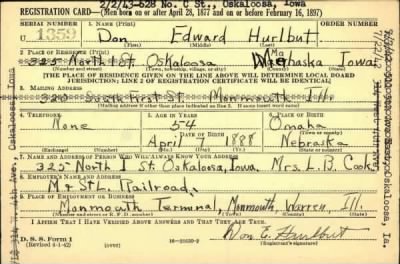 2/2/43-528 No. C St., Oskaloosa, Iowa
REGISTRATION CARD—(Men born on or after April 28, 1877 and on or before February 16, 1897)
SERIAL NUMBER 1. NAME (Print) ORDER NUMBER
U 1359 Don Edward Hurlbut
(First) (Middle) (Last)
2. PLACE OF RESIDENCE (Print)
325 North 1 St. Oskaloosa Mahaska Iowa
(Number and street) (Town, township, village, or city) (County) (State)
[THE PLACE OF RESIDENCE GIVEN ON THE LINE ABOVE WILL DETERMINE LOCAL BOARD
JURISDICTION; LINE 2 OF REGISTRATION CERTIFICATE WILL BE IDENTICAL]
3. MAILING ADDRESS
320 South First St. Monmouth Ill.
[Mailing address if other than place indicated on line 2. If same insert word same]
4. TELEPHONE 5. AGE IN YEARS 6. PLACE OF BIRTH
None 54 Omaha
DATE OF BIRTH (Town or county)
April 7 1888 Nebraska
(Exchange) (Number) (Mo.) (Day) (Yr.) (State or country)
7. NAME AND ADDRESS OF PERSON WHO WILL ALWAYS KNOW YOUR ADDRESS
325 North 1 St. Oskaloosa, Iowa. Mrs. L. B. Cook
8. EMPLOYER'S NAME AND ADDRESS
M & St. L. Railroad
9. PLACE OF EMPLOYMENT OR BUSINESS
Monmouth Terminal, Monmouth, Warren Ill.
(Number and street or R. F. D. number) (Town) (County) (State)
I AFFIRM THAT I HAVE VERIFIED ABOVE ANSWERS AND THAT THEY ARE TRUE.
D. S. S. Form 1
(Revised 4-1-42) (over) 16—21630-2 Don E. Hurlbut
(Registrant's signature)